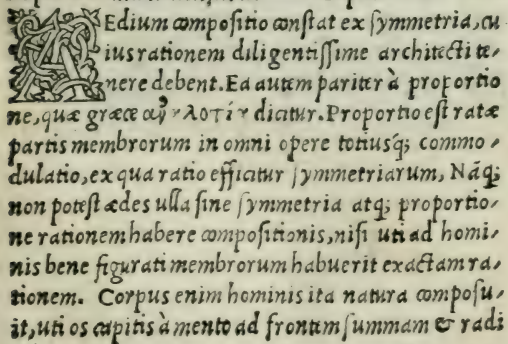 AEdium compoſitio conſtat ex ſymmetria, cu
ius rationem diligentiſſime architecti te⸗
nere debent. Ea autem paritur à proportio
ne, quæ græce dicitur. Proportio eſt ratæ
partis membrorum in omni opere totiusq́; commo⸗
dulatio, ex qua ratio efficitur ſymmetriarum, Nãq;
non poteſt ædes ulla ſine ſymmetria atq; proportio⸗
ne rationem habere compoſitionis, niſi uti ad homi⸗
nis bene figurati membrorum habuerit exactam ra⸗
tionem. Corpus enim hominis ita natura compoſu⸗
it, uti os capitis à mento ad frontem ſummam & radi